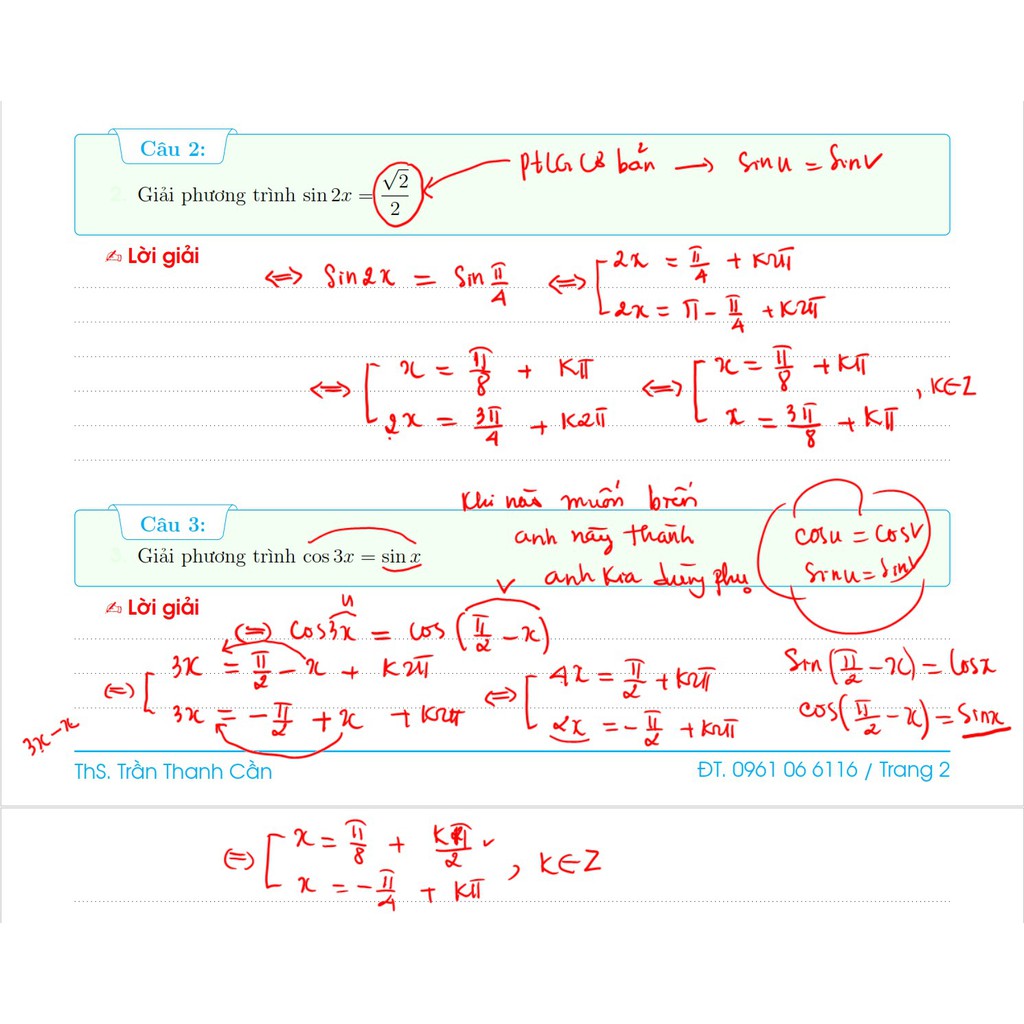 Câu 2:
Giải phương trình sin 2x = √2/2
PtLG Cơ bản → Sinu = Sinv
✍ Lời giải
⇔ Sin2x = Sin π/4 ⇔ [ 2x = π/4 + K2π
2x = π - π/4 + K2π
⇔ [ x = π/8 + Kπ ⇔ [ x = π/8 + Kπ
2x = 3π/4 + K2π x = 3π/8 + Kπ , K∈Z
Khi nào muốn biến
anh này thành
anh kia dùng phụ
Câu 3:
Giải phương trình cos 3x = sin x
cosu = cosv
Sinu = Sinv
✍ Lời giải
u v
⇔ Cos3x = cos (π/2 - x)
⇔ [ 3x = π/2 - x + K2π ⇔ [ 4x = π/2 + K2π
3x = -π/2 + x + K2π 2x = -π/2 + K2π
Sin(π/2 - x) = Cosx
cos(π/2 - x) = Sinx
3x - x
ThS. Trần Thanh Cần ĐT. 0961 06 6116 / Trang 2
⇔ [ x = π/8 + Kπ/2
x = -π/4 + Kπ , K∈Z